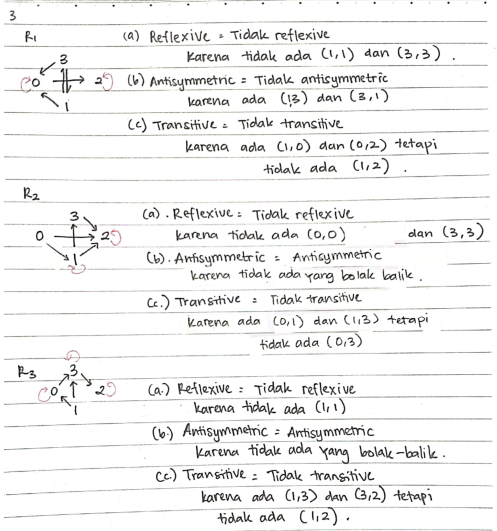 3
R1
(a) Reflexive = Tidak reflexive
karena tidak ada (1,1) dan (3,3).
3
0 2
1
(b) Antisymmetric = Tidak antisymmetric
karena ada (13) dan (3,1)
(c) Transitive = Tidak transitive
karena ada (1,0) dan (0,2) tetapi
tidak ada (1,2).
R2
3
0 2
1
(a). Reflexive = Tidak reflexive
karena tidak ada (0,0) dan (3,3)
(b). Antisymmetric = Antisymmetric
karena tidak ada yang bolak balik.
(c.) Transitive = Tidak transitive
karena ada (0,1) dan (1,3) tetapi
tidak ada (0,3)
R3
3
0 2
1
(a.) Reflexive = Tidak reflexive
karena tidak ada (1,1)
(b.) Antisymmetric = Antisymmetric
karena tidak ada yang bolak-balik.
(c.) Transitive = Tidak transitive
karena ada (1,3) dan (3,2) tetapi
tidak ada (1,2).